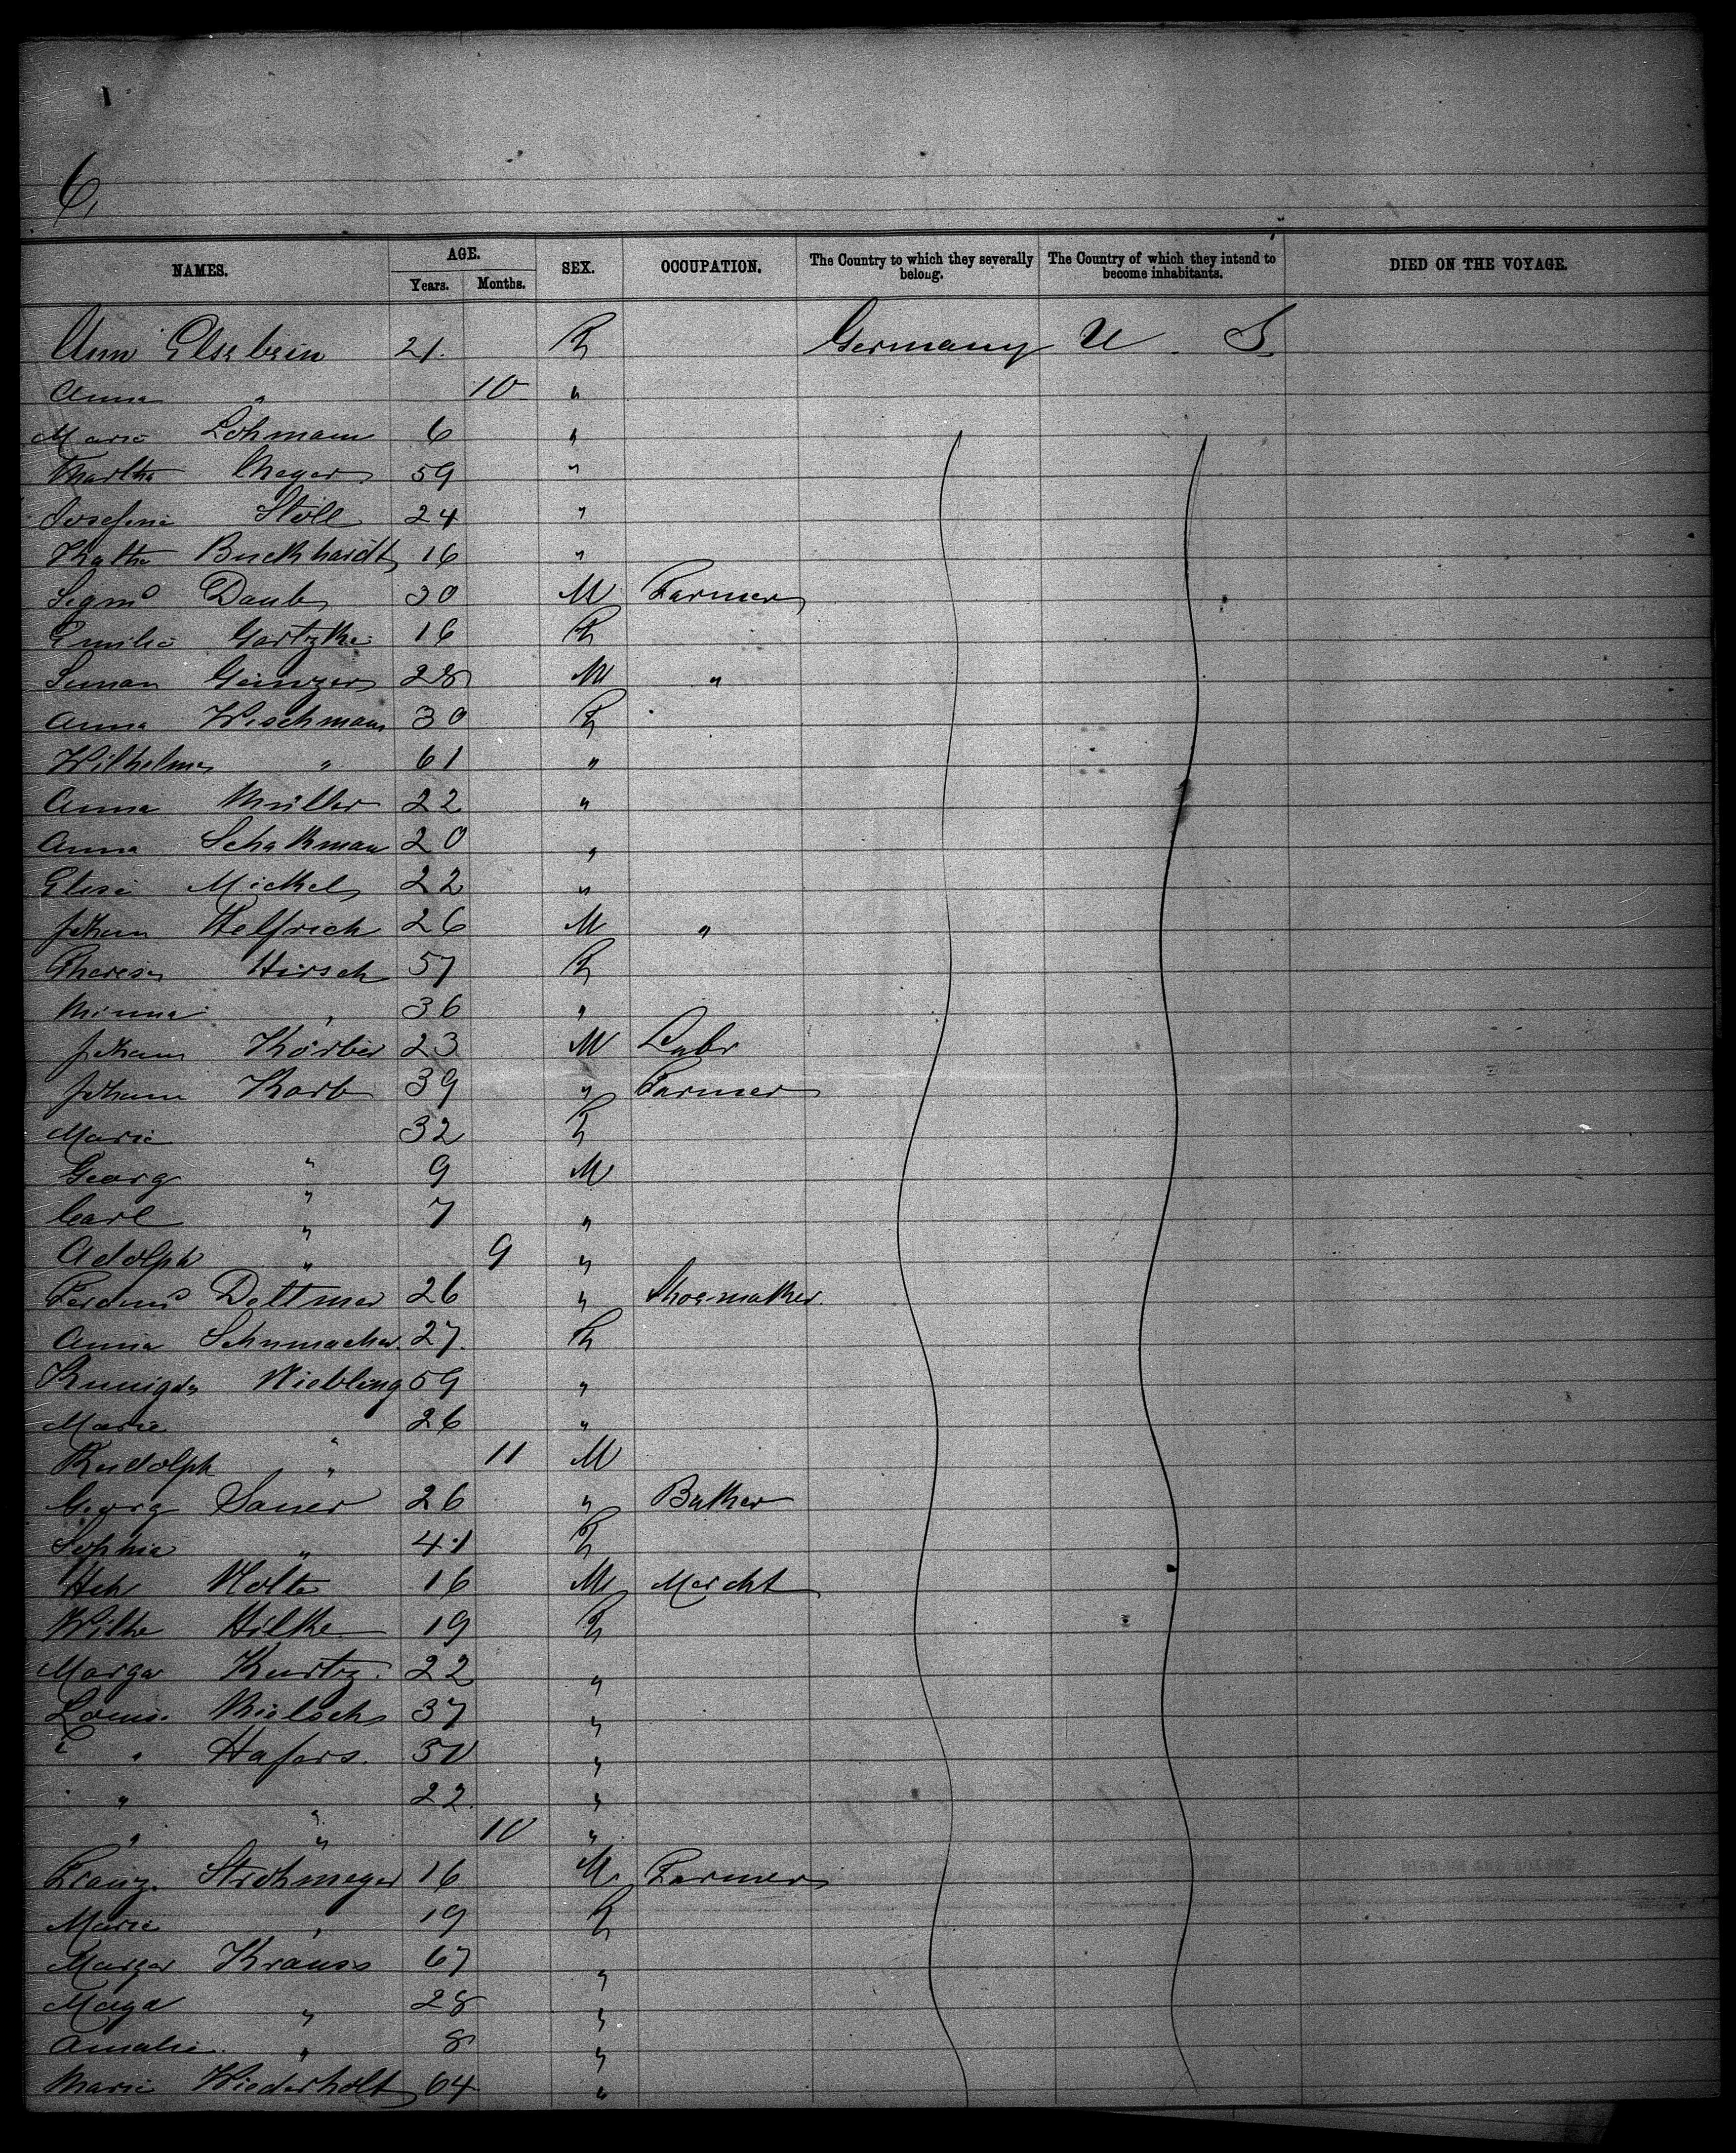 6,
NAMES. AGE. Years. Months. SEX. OCCUPATION. The Country to which they severally belong. The Country of which they intend to become inhabitants. DIED ON THE VOYAGE.
Ann 21. Germany U. S.
Anna " 10 "
Marie Lohmann 6 "
Martha Meyer 59 "
Josefine Stoll 24 "
Kathe Buckhardt 16 "
Segmd Daub 30 M Farmer
Emilie Gartzke 16
28 M "
Anna Wischmann 30
Wilhelm " 61 "
Anna Müller 22 "
Anna Schakman 20 "
Elise Mickel 22 "
Johann Helfrich 26 M "
Theresa Hirsch 57
Minna " 36 "
Johann Körber 23 M Labr
Johann Karb 39 " Farmer
Marie " 32
Georg " 9 M
Carl " 7 "
Adolph " 9 "
Ferdind Dettmer 26 " Shoemaker.
Anna Schumacher. 27.
Kunigda Wiebling 59 "
Marie " 26 "
Rudolph " 11 M
Georg Sauer 26 " Baker
Sophia " 41
Hch Nolte 16 M Mercht
Wilhe Hilke 19
Margar Kurtz. 22 "
Louise 37 "
" Hafers. 50 "
" " 22. "
" " 10 "
Franz. Strohmeyer 16 M Farmer
Marie " 19
Margar Krauss 67 "
Magd " 28 "
Amalie " 8 "
Marie Wiederholt 64 "